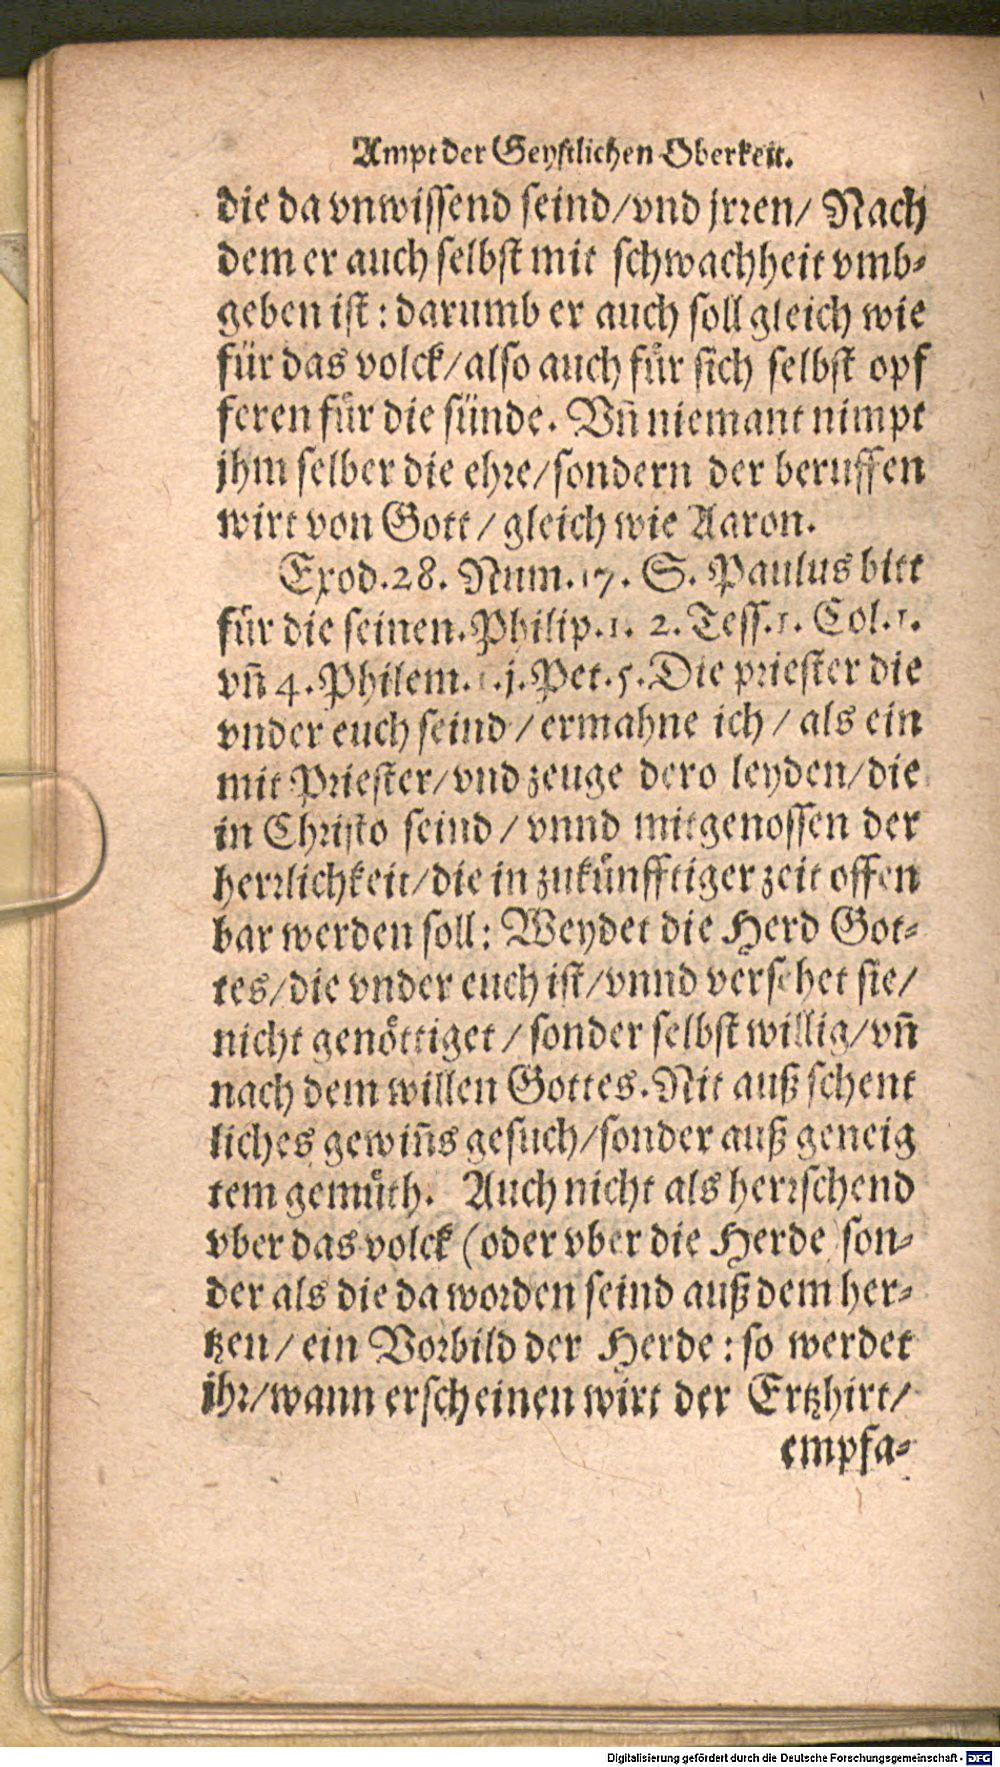 Ampt der Geystlichen Oberkeit.
die da vnwissend seind/vnd jrren/ Nach
dem er auch selbst mit schwachheit vmb-
geben ist: darumb er auch soll gleich wie
für das volck/also auch für sich selbst opf
feren für die sünde. Vñ niemant nimpt
jhm selber die ehre/sondern der beruffen
wirt von Gott/ gleich wie Aaron.
Exod.28. Num.17. S. Paulus bitt
für die seinen.Philip.1. 2.Tess.1. Col.1.
vñ 4.Philem. 1.j.Pet.5.Die priester die
vnder euch seind/ermahne ich/als ein
mit Priester/vnd zeuge dero leyden/die
in Christo seind/vnnd mitgenossen der
herrlichkeit/die in zukünfftiger zeit offen
bar werden soll: Weydet die Herd Got-
tes/die vnder euch ist/vnnd versehet sie/
nicht genöttiget/sonder selbst willig/vñ
nach dem willen Gottes.Nit auß schent
liches gewiñs gesuch/sonder auß geneig
tem gemüth. Auch nicht als herrschend
vber das volck (oder vber die Herde) son-
der als die da worden seind auß dem her-
tzen/ein Vorbild der Herde: so werdet
ihr/wann erscheinen wirt der Ertzhirt/
empfa-
Digitalisierung gefördert durch die Deutsche Forschungsgemeinschaft - DFG